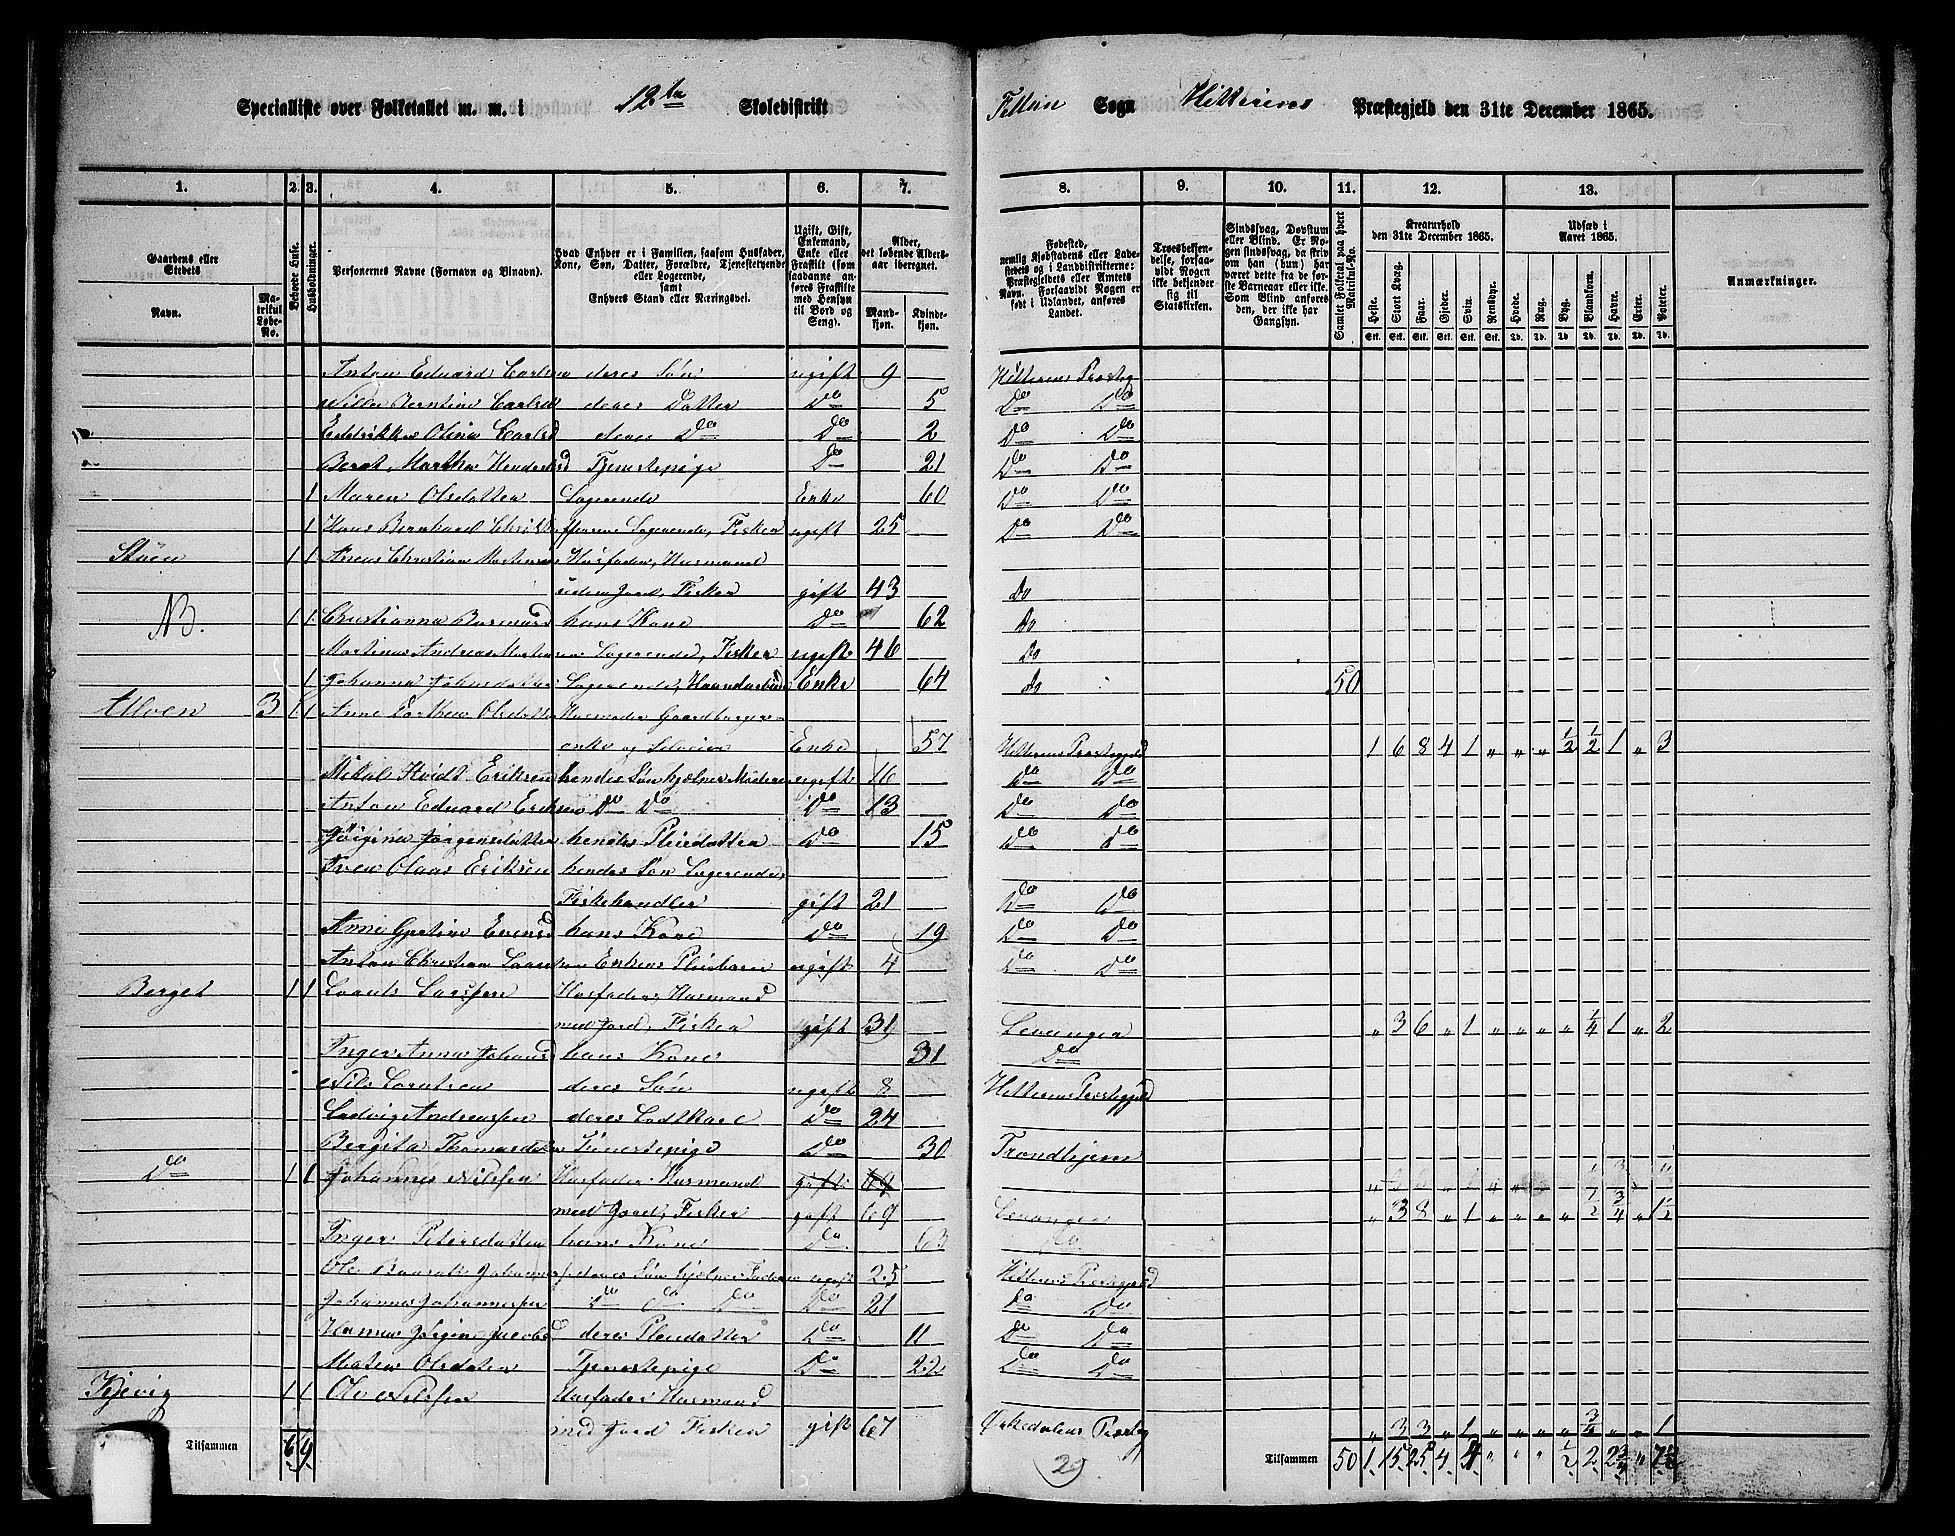 Specialliste over Folketallet m. m. i 12te Skoledistrikt Fillan Sogn Hitterens Præstegjeld den 31te December 1865.
1. 2. 3. 4. 5. 6. 7. 8. 9. 10. 11. 12. 13.
Gaardens eller Stedets Navn. Matrikul Løbe-No. Beboede Huse. Husholdninger. Personernes Navne (Fornavn og Tilnavn).
Hvad Enhver er i Familien, saasom Husfader, Kone, Søn, Datter, Forældre, Tjenestetyende eller Logerende, samt Enhvers Stand eller Næringsvei.
Ugift, Gift, Enkemand, Enke eller Fraskilt (som saadanne anføres Fraskilte med Hensyn til Bord og Seng).
Alder, det løbende Alders-aar iberegnet. Mandkjøn. Kvindekjøn.
Fødested, nemlig Kjøbstadens eller Ladestedets og i Landdistrikterne: Præstegjeldets eller Amtets Navn. Forsaavidt Nogen er født i Udlandet, anføres Landet.
Troesbekjendelse, forsaavidt Nogen ikke bekjender sig til Statskirken.
Sindssvag, Døvstum eller Blind. Er Nogen sindssvag, da skriv om han (hun) har været dette fra de første Barneaar eller ikke. Som Blind anføres den, der ikke har Gangsyn.
Samlet Folketal paa hvert Matrikul-No.
Kreaturhold den 31te December 1865. Heste. Stort Kvæg. Faar. Gjeder. Sviin. Rensdyr.
Udsæd i Aaret 1865. Hvede. Rug. Byg. Blandkorn. Havre. Erter. Poteter.
Anmærkninger.
Anton Eduard Carlsen deres Søn ugift 9 Hitterens Præsteg
Berntine Carlsd deres Datter Do 5 Do Do
Olina Carlsd deres Do Do 2 Do Do
Beret Martha Tjenestepige Do 21 Do Do
1 Maren Olsdatter Logerende Enke 60 Do Do
1 Hans Bernhard Logerende, Fisker ugift 25 Do Do
1 1 Christian Mortensen Husfader, Husmand
uden Jord, Fisker gift 43 Do
NB. 1 1 Christianna hans Kone Do 62 Do
Martinus Andreas Logerende, Fisker ugift 46 Do
1 Johanna Johnsdatter Logerende, Haandarbeide Enke 64 do 50
Ulven 3 1 1 Anne Olsdatter Husmoder Gaardbruger
enke og Selveier Enke 57 Hitterens Præstegjeld 1 6 8 4 1 „ „ „ 1/2 1/2 1 „ 3
Mikal Hvidt Eriksen hendes Søn hjælper Moderen ugift 16 Do Do
Anton Eduard Eriksen Do Do Do 13 Do Do
Jørgensdatter hendes Pleiedatter Do 15 Do Do
Olaus Eriksen hendes Søn Logerende,
Fiskehandler gift 21 Do Do
Anne Gjertine Evensd hans Kone Do 19 Do Do
Anton Christian Enkens Pleiebarn ugift 4 Do Do
Berget 1 1 Husfader Husmand
med Jord, Fisker gift 31 Levanger „ 3 6 „ 1 „ „ „ „ 1/4 1 „ 2
Inger Anna Johansd hans Kone 31 Do
Nils Lorntsen deres Søn ugift 8 Hitterens Præstegjeld
Ludvig Andreassen deres Lodtkarl Do 24
Bergita Thomasdatter Tjenestepige Do 30 Trondhjem
Do 1 1 Johannes Nilssen Husfader Husmand gift 69
med Jord, Fisker gift 69 Levanger „ 3 8 „ 1 „ „ „ „ 1/2 3/4 „ 1 1/2
Inger Petersdatter hans Kone Do 63 Do
Ole deres Søn hjælper Faderen ugift 25 Hitterens Præstegjeld
Johannes Johannessen Do Do Do Do 21 Do Do
Hanna Jacobsd deres Pleiedatter Do 11 Do Do
Maren Olsdatter Tjenestepige Do 22 Do Do
Kjevig 1 1 Ole Nilssen Husfader Husmand
med Jord Fisker gift 67 Ørkedalens Præsteg „ 3 3 „ 1 „ „ „ „ 3/4 „ „ 1
Tilsammen 6 9 29 Tilsammen 50 1 15 25 4 4 „ „ „ 1/2 2 2 3/4 „ 7 1/2